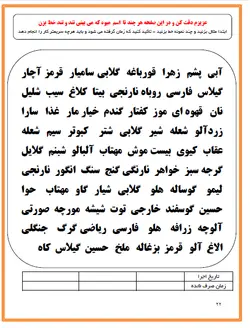 عزیزم دقت کن و در این صفحه هر چند تا اسم میوه که می بینی تند و تند خط بزن
ابتدا مثال بزنید و چند نمونه خط بزنید - تاکید کنید که زمان گرفته می شود و باید هرچه سریعتر کار را انجام دهد
آبی پشم زهرا قورباغه گلابی سامیار قرمز آچار
گیلاس فارسی روباه نارنجی بیتا کلاغ سیب شلیل
نان قهوه ای موز کفتار گندم خیار مار غذا سارا
زردآلو شعله شیر گلابی شتر کبوتر سیم شعله
عقاب کیوی بیست موش مهتاب آلبالو شبنم گلایل
گرجه سبز خواهر نارنگی گنج سنگ انگور نارنجی
لیمو گوساله هلو گلابی شیار گاو مهتاب حوا
حسین گوسفند خارجی توت شیشه مورچه صورتی
آلوچه زرافه هلو فارسی ریاضی گرگ جنگلی
الاغ آلو قرمز بزغاله ملخ حسین گیلاس کاه
تاریخ اجرا
زمان صرف شده
۲۲